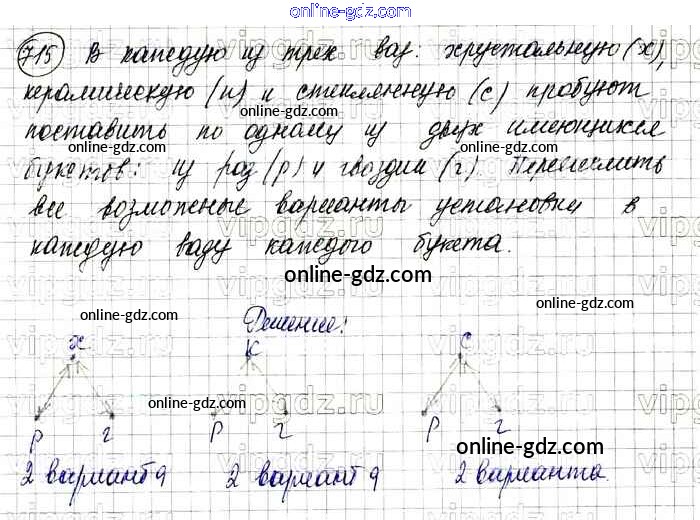 online-gdz.com
715 В каждую из трех ваз: хрустальную (х),
керамическую (к) и стеклянную (с) пробуют
online-gdz.com
поставить по одному из двух имеющихся
букетов: из роз (р) и гвоздик (г). Перечислить
online-gdz.com
все возможные варианты установки в
каждую вазу каждого букета.
online-gdz.com
Решение:
online-gdz.com online-gdz.com
х К с
online-gdz.com online-gdz.com
р г р г р г
online-gdz.com
2 варианта 2 варианта 2 варианта.